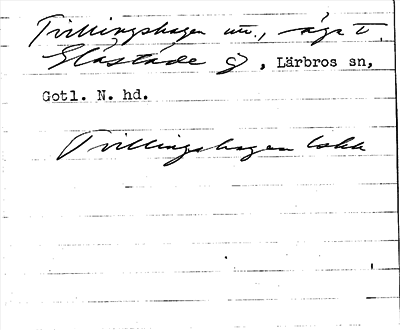 Tvillingshagen m., ägr t.
Glästäde g, Lärbros sn,
Gotl. N. hd.
Tvillingshagen lokk